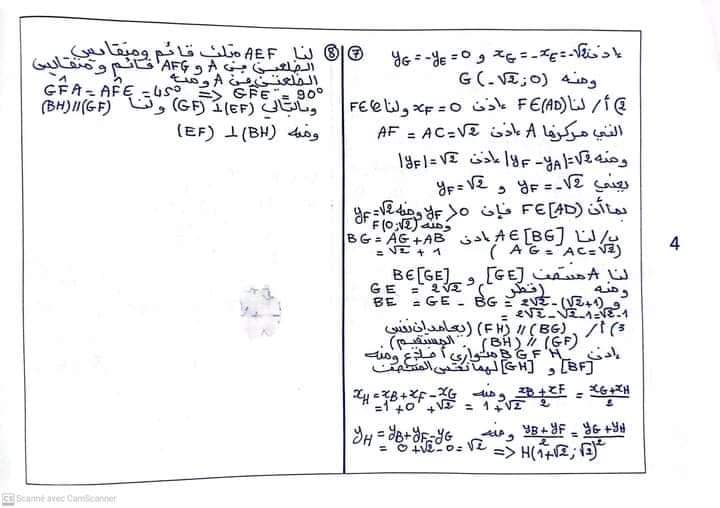 ⑦
إذن x_G = -x_E = -√2 و y_G = -y_E = 0
ومنه G(-√2;0)
2) أ/ لنا F∈(AD) إذن x_F = 0 ولنا F∈𝒞
التي مركزها A إذن AF = AC = √2
ومنه |y_F - y_A| = √2 إذن |y_F| = √2
يعني y_F = -√2 و y_F = √2
بما أن F∈[AD) فإن y_F > 0 ومنه y_F = √2
ومنه F(0;√2)
ب/ لنا A∈[BG] إذن BG = AG + AB
(AG = AC = √2) = √2 + 1
لنا A منتصف [GE] و B∈[GE]
ومنه GE = 2√2 (قطر)
و BE = GE - BG = 2√2 - (√2+1)
= 2√2 - √2 - 1 = √2 - 1
3) أ/ (BG) // (FH) (يعامدان نفس
المستقيم) (GF) // (BH)
إذن BGFH متوازي أضلاع ومنه
[BF] و [GH] لهما نفس المنتصف
(x_B + x_F)/2 = (x_G + x_H)/2 ومنه x_H = x_B + x_F - x_G
= 1 + 0 + √2 = 1 + √2
(y_B + y_F)/2 = (y_G + y_H)/2 ومنه y_H = y_B + y_F - y_G
= 0 + √2 - 0 = √2 => H(1+√2;√2)
⑧
لنا AEF مثلث قائم ومتقايس
الضلعين في A و AFG قائم ومتقايس
الضلعين في A ومنه
GF̂A = AF̂E = 45° => GF̂E = 90°
وبالتالي (GF) ⊥ (EF) ولنا (BH) // (GF)
ومنه (EF) ⊥ (BH)
4
CS Scanné avec CamScanner